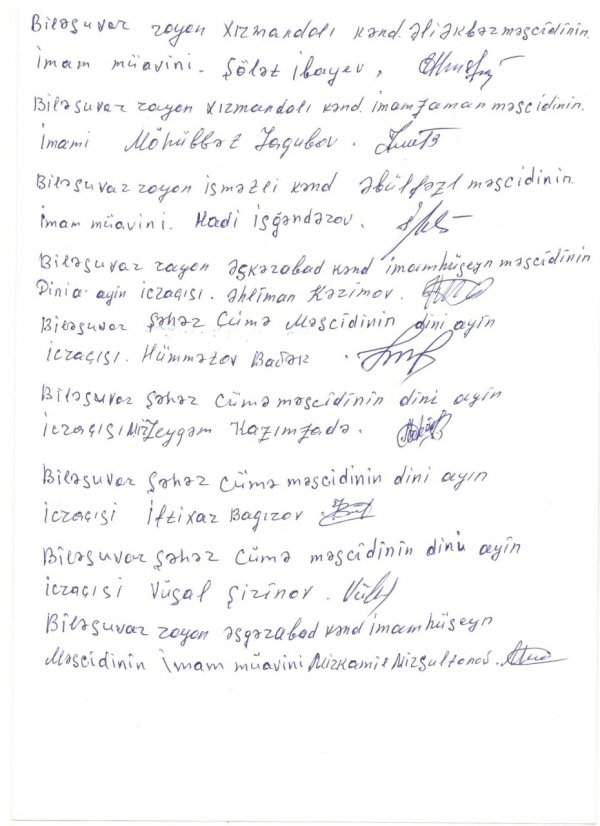 Biləsuvar rayon Xırmandalı kənd. Əli Əkbər məscidinin.
İmam müavini. Şölət İbayev,
Biləsuvar rayon Xırmandalı kənd. imamzaman məscidinin.
İmamı Möhübbət Yaqubov.
Biləsuvar rayon ismətli kənd Əbülfəzl məscidinin.
İmam müavini. Hadi İsgəndərov.
Biləsuvar rayon Əsgərabad kənd imamhüseyn məscidinin
Dinia ayin icraçısı. Əhliman Kərimov.
Biləsuvar Şəhər Cümə Məscidinin dini ayin
icraçısı. Hümmətov
Biləsuvar Şəhər Cümə məscidinin dini ayin
icraçısı Mir Zeyqəm Kazımzadə.
Biləsuvar Şəhər Cümə məscidinin dini ayın
icraçısı İftixar Bagırov
Biləsuvar Şəhər Cümə məscidinin dini ayin
icraçısı Vüşal Şirinov.
Biləsuvar rayon əsgərabad kənd imamhüseyn
Məscidinin İmam müavini Mirkamil Mirsultanov.